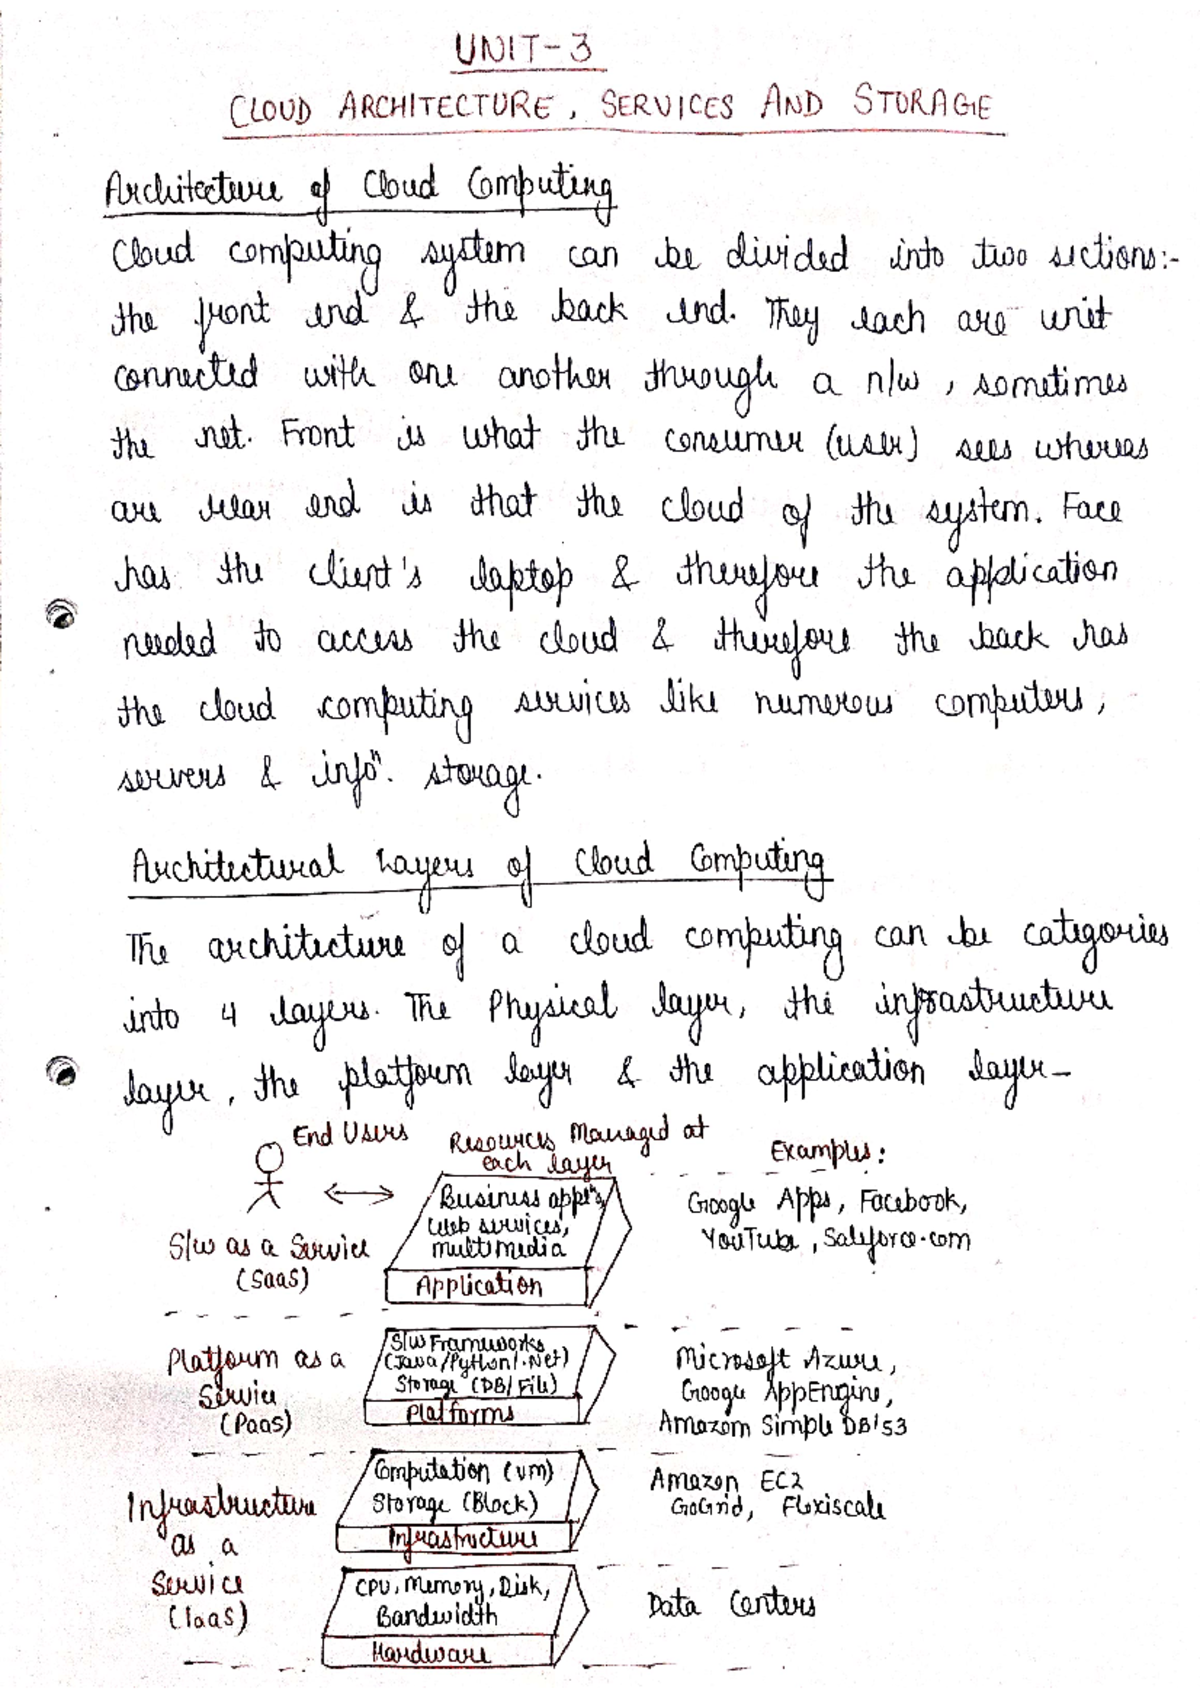 UNIT-3
CLOUD ARCHITECTURE, SERVICES AND STORAGE
Architecture of Cloud Computing
Cloud computing system can be divided into two sections:-
the front end & the back end. They each are unit
connected with one another through a n/w, sometimes
the net. Front is what the consumer (user) sees whereas
are rear end is that the cloud of the system. Face
has the client's laptop & therefore the application
needed to access the cloud & therefore the back has
the cloud computing services like numerous computers,
servers & infoⁿ. storage.
Architectural Layers of Cloud Computing
The architecture of a cloud computing can be categories
into 4 layers. The Physical layer, the infrastructure
layer, the platform layer & the application layer-
End Users
Resources Managed at
each layer
Examples:
S/w as a Service
(SaaS)
Business appsⁿ,
Web services,
multimedia
Application
Google Apps, Facebook,
YouTube, Salesforce.com
Platform as a
Service
(PaaS)
S/W Frameworks
(Java/Python/.Net)
Storage (DB/File)
Platforms
Microsoft Azure,
Google AppEngine,
Amazom Simple DB/S3
Infrastructure
as a
Service
(IaaS)
Computation (vm)
Storage (Block)
Infrastructure
Amazon EC2
GoGrid, Flexiscale
CPU, Memory, Disk,
Bandwidth
Hardware
Data Centers